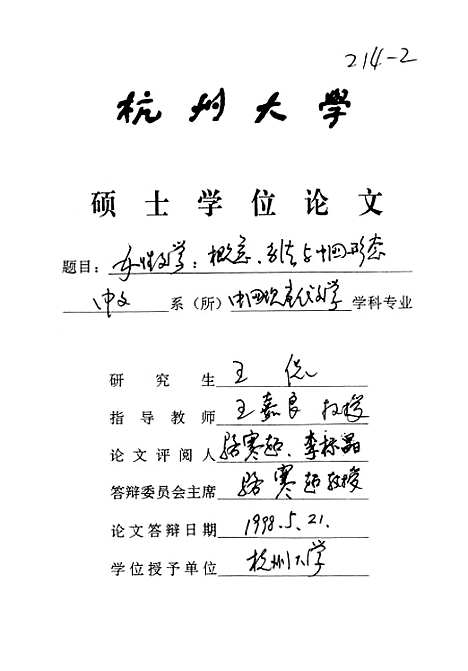 214-2
杭州大学
硕士学位论文
题目：女性文学：概念、方法与中国形态
中文 系（所） 中国现当代文学 学科专业
研究生 王侃
指导教师 王嘉良 教授
论文评阅人 骆寒超、李标晶
答辩委员会主席 骆寒超教授
论文答辩日期 1998.5.21.
学位授予单位 杭州大学